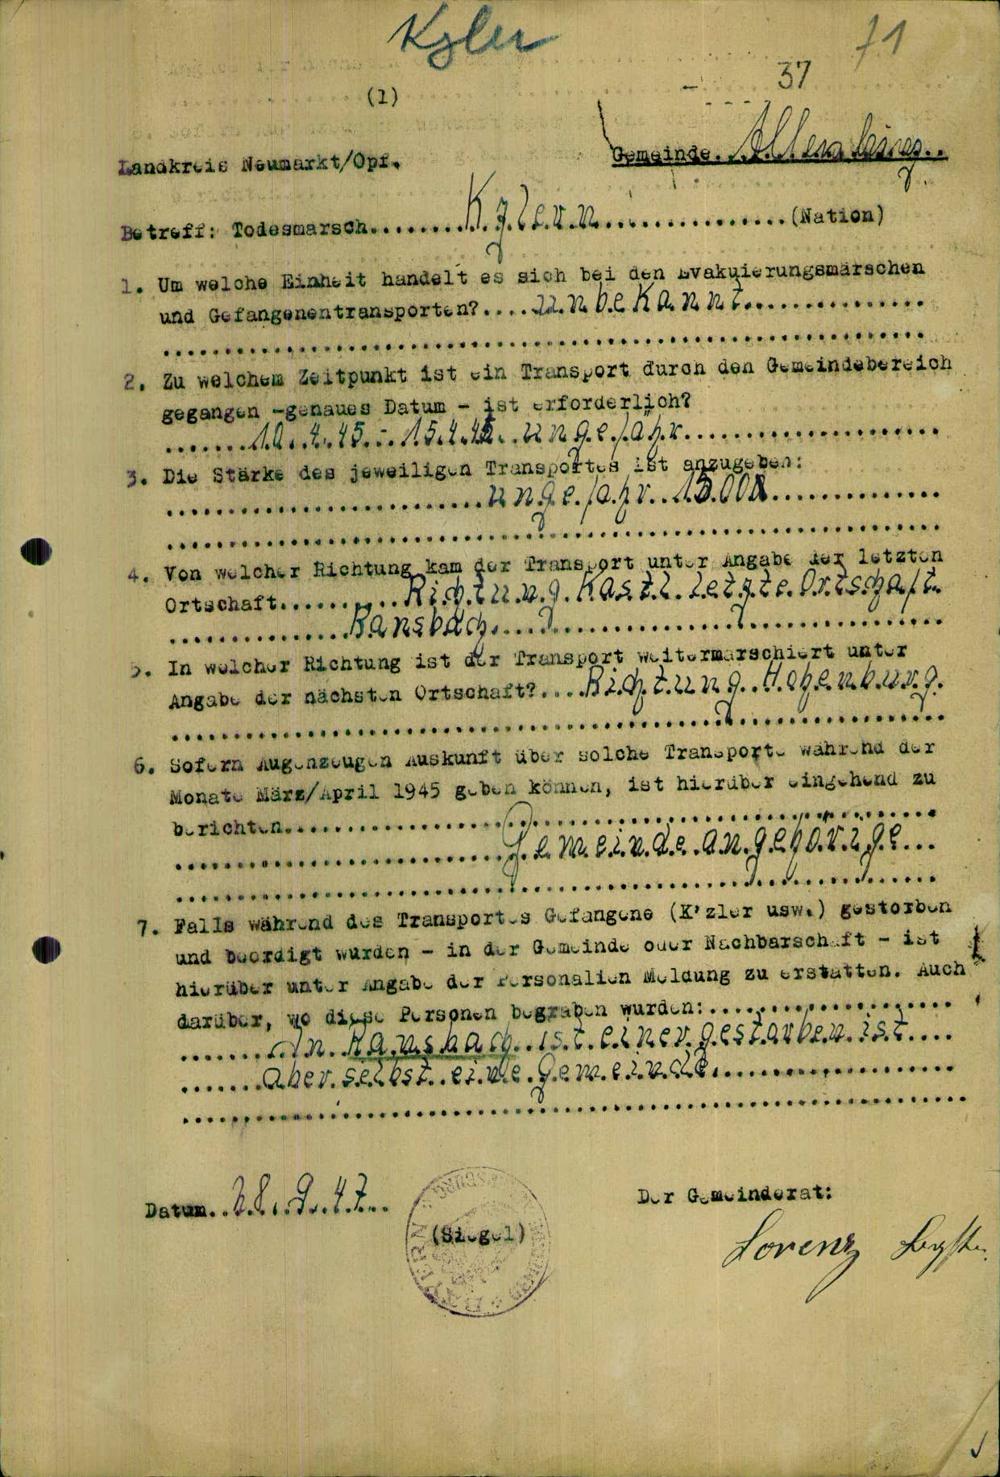 Kzler
71
37
(1)
Landkreis Neumarkt/Opf.
Gemeinde. Allersburg..
Betreff: Todesmarsch........Kzlern................(Nation)
1. Um welche Einheit handelt es sich bei den Evakuierungsmärschen
und Gefangenentransporten?....unbekannt...............
2. Zu welchem Zeitpunkt ist ein Transport durch den Gemeindebereich
gegangen -genaues Datum - ist erforderlich?
.......10.4.45.-.15.4.45..ungefähr.....................
3. Die Stärke des jeweiligen Transportes ist anzugeben:
..........................ungefähr..15.000..............
4. Von welcher Richtung kam der Transport unter Angabe der letzten
Ortschaft..........Richtung.Kastl.letzte.Ortschaft.
..............Ransbach...............................
5. In welcher Richtung ist der Transport weitermarschiert unter
Angabe der nächsten Ortschaft?....Richtung..Hohenburg.
6. Sofern Augenzeugen Auskunft über solche Transporte während der
Monate März/April 1945 geben können, ist hierüber eingehend zu
berichten..................................................
..........................Gemeindeangehörige...
7. Falls während des Transportes Gefangene (K'zler usw.) gestorben
und beerdigt wurden - in der Gemeinde oder Nachbarschaft - ist
hierüber unter Angabe der Personalien Meldung zu erstatten. Auch
darüber, wo diese Personen begraben wurden:....................
.......In.Ransbach..ist.einer.gestorben.ist....
.......aber.selbst..eine.Gemeinde................
Datum..28..9..47...
(Siegel)
BAYERN
Der Gemeinderat:
Lorenz